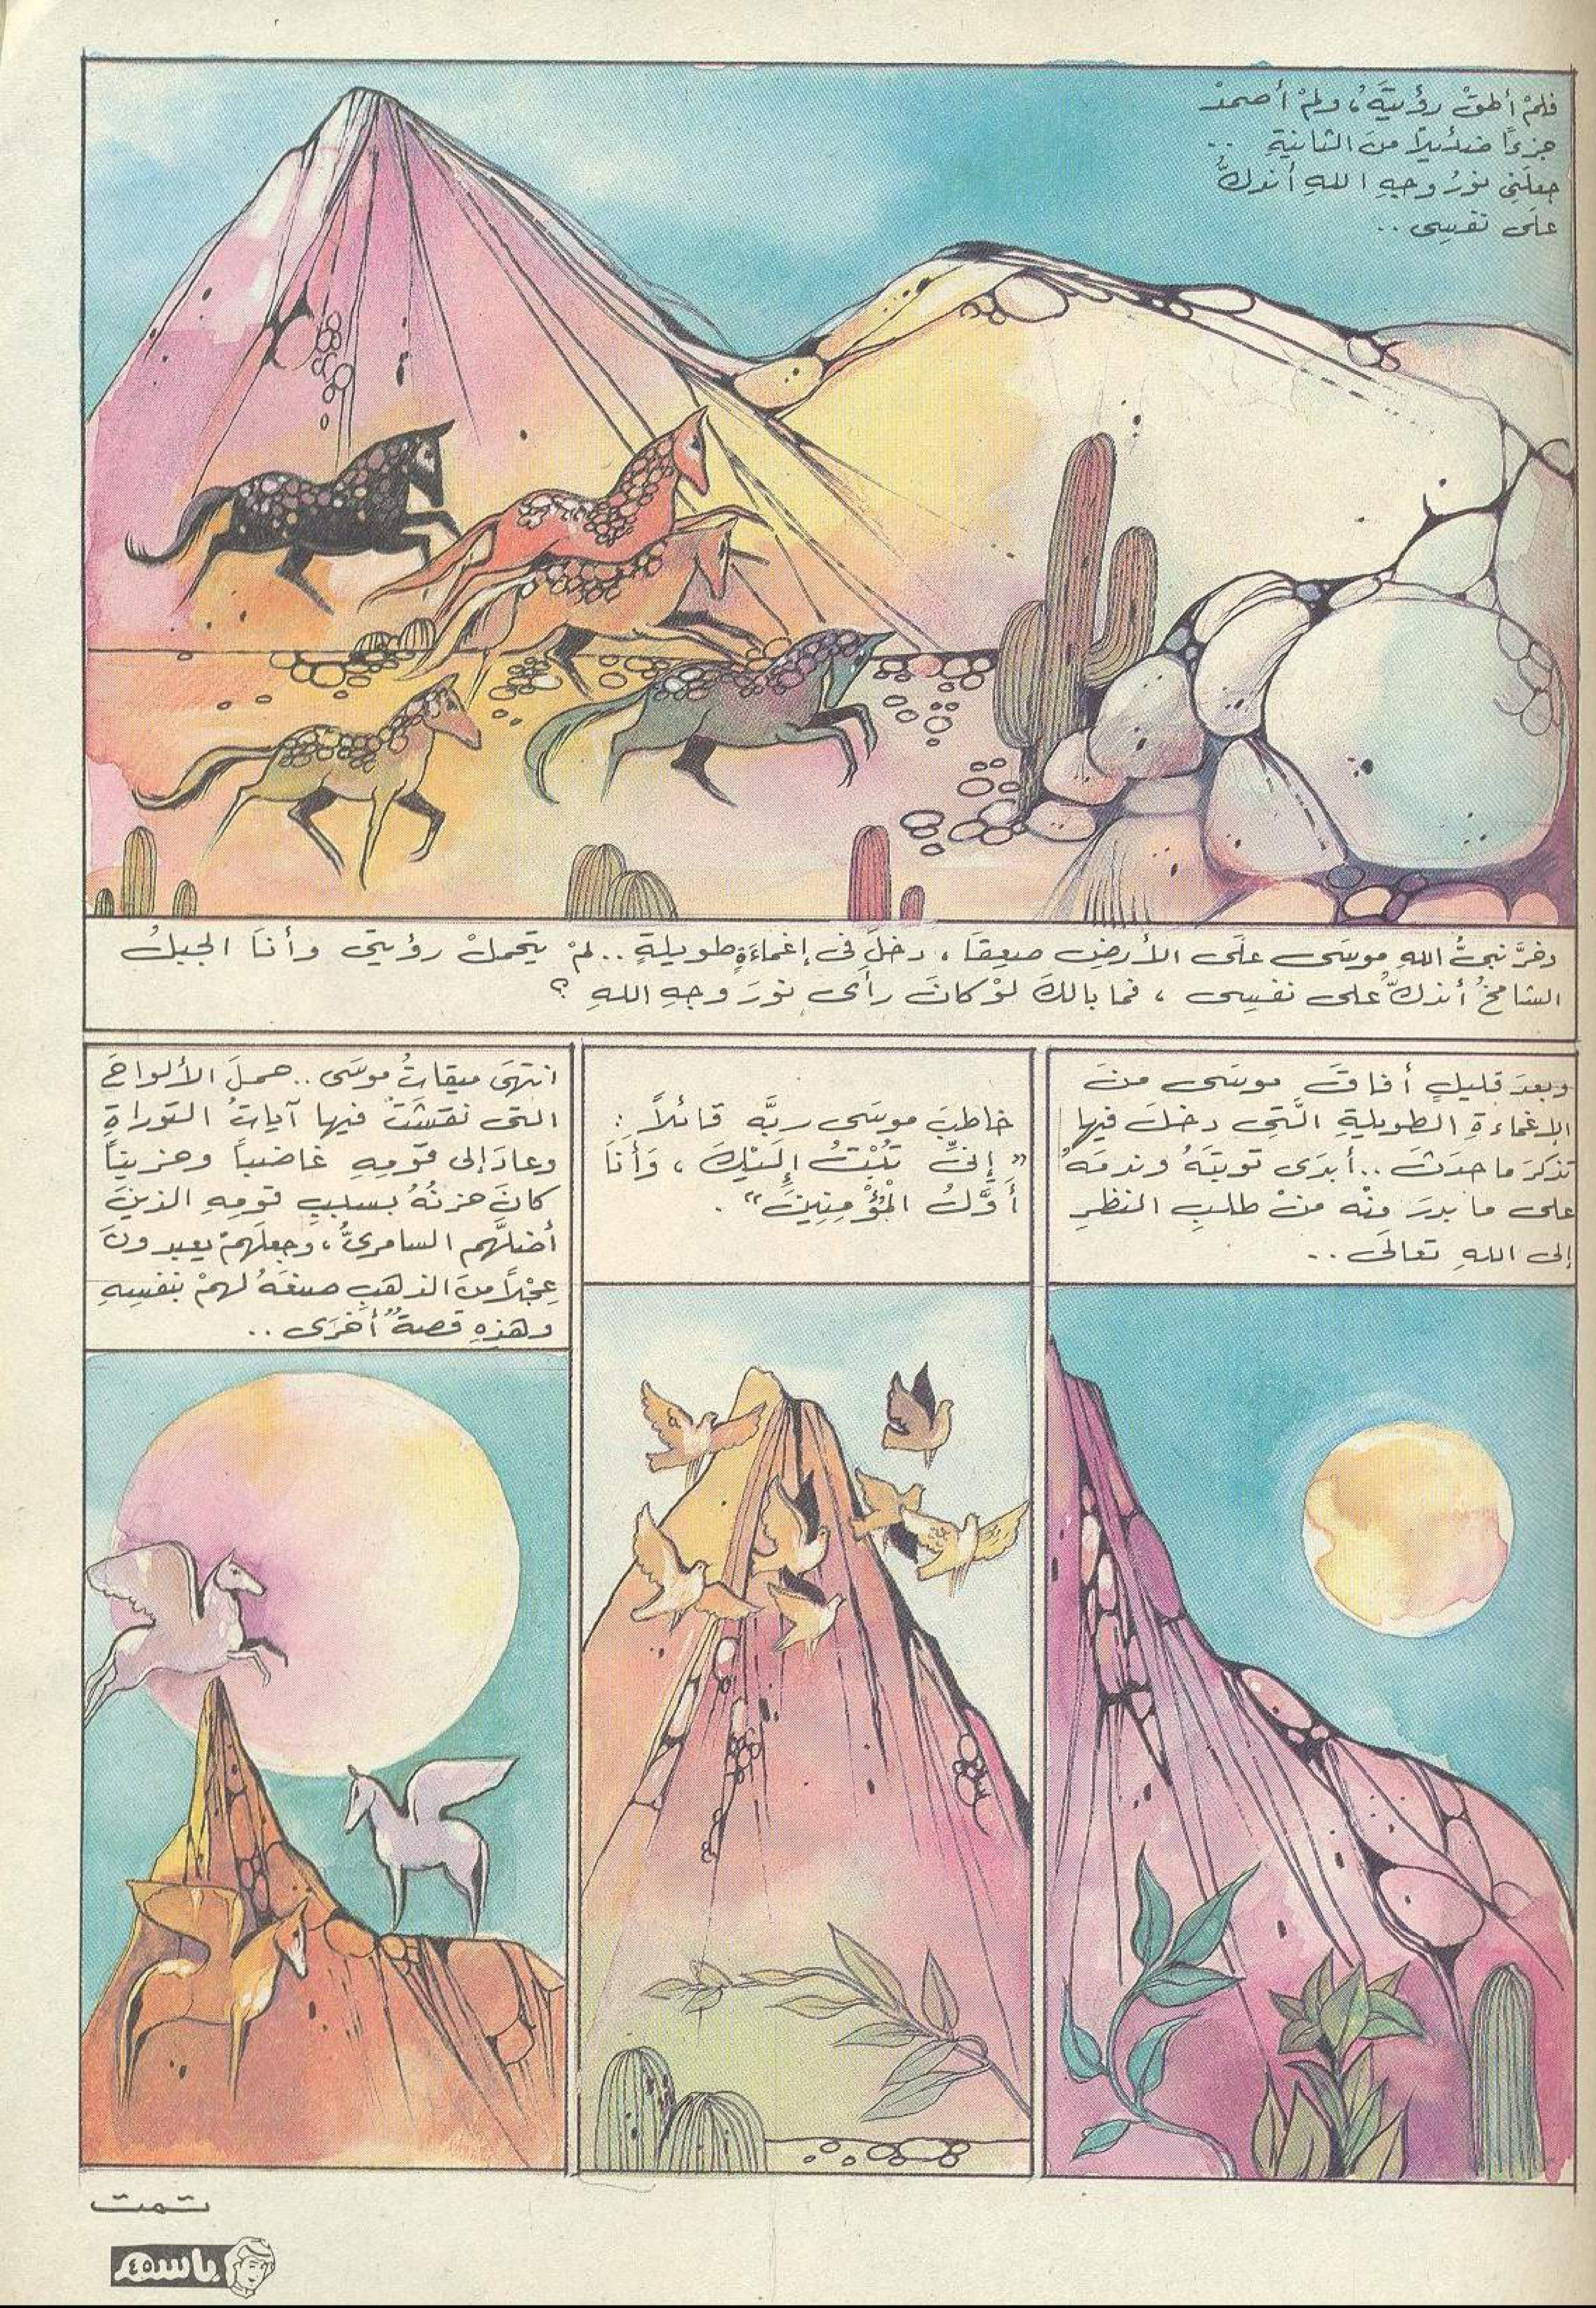 فلمْ أطقْ رؤيتَهُ، ولمْ أصمدْ
جزءًا ضئيلاً منَ الثانيةِ ..
جعلَنِى نورُ وجهِ اللهِ أندكُّ
علَى نفسِى ..
وخرَّ نبىُّ اللهِ موسَى علَى الأرضِ صعِقًا ، دخلَ فى إغماءَةٍ طويلةٍ .. لمْ يتحملْ رؤيتى وأنَا الجبلُ
الشامخُ أندكُّ على نفسِى ، فما بالكَ لوْ كانَ رأَى نورَ وجهِ اللهِ ؟
وبعدَ قليلٍ أفاقَ موسَى منَ
الإغماءةِ الطويلةِ الَّتِى دخلَ فيها
تذكرَ ما حدَثَ .. أبدَى توبتَهُ وندمَهُ
على ما بدرَ منْه منْ طلبِ النظرِ
إلى اللهِ تعالَى ..
خاطبَ موسَى ربَّه قائلاً :
" إِنِّى تُبْتُ إِلَيْكَ ، وَأَنَا
أَوَّلُ الْمُؤْمِنِينَ " .
انتهَى ميقاتُ موسَى .. حملَ الألواحَ
التى نقشَتْ فيها آياتُ التوراةِ
وعادَ إلى قومِهِ غاضباً وحزيناً
كانَ حزنُهُ بسببِ قومِهِ الذينَ
أضلَّهم السامرىُّ، وجعلَهمْ يعبدونَ
عِجْلاً منَ الذهَبِ صنعَهُ لهمْ بنفسِهِ
وهذِهِ قصةٌ أخرَى ..
تمت
باسم ٤٥